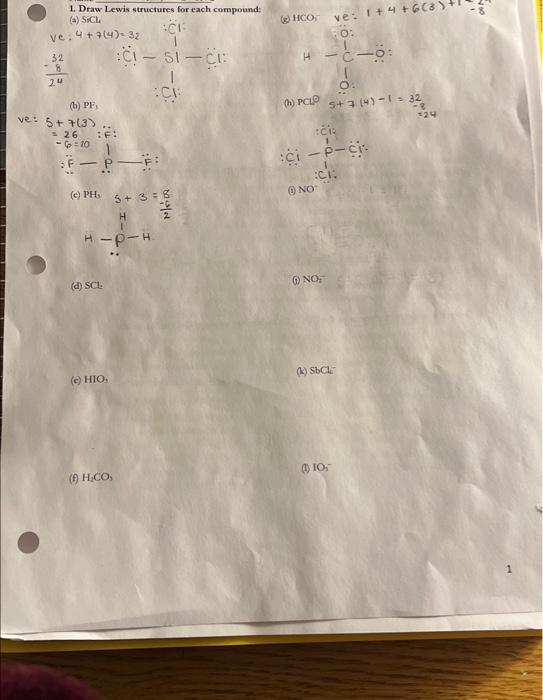 1. Draw Lewis structures for each compound:
(a) SiCl₄
ve: 4 + 7(4) = 32
32
- 8
24
:Cl:
:Cl — Si — Cl:
:Cl:
(b) PF₃
ve: 5 + 7(3)
= 26
- 6 = 20
:F:
:F — P — F:
(c) PH₃
5 + 3 = 8
-6
2
H
H — P — H
(d) SCl₂
(e) HIO₃
(f) H₂CO₃
(g) HCO₃⁻
ve: 1 + 4 + 6(3) + 1
- 8
:O:
H — C — O:
O:
(h) PCl₄
5 + 7(4) - 1 = 32
-8
=24
:Cl:
:Cl — P — Cl:
:Cl:
(i) NO⁺
(j) NO₂⁻
(k)
(l) IO₃⁻
1